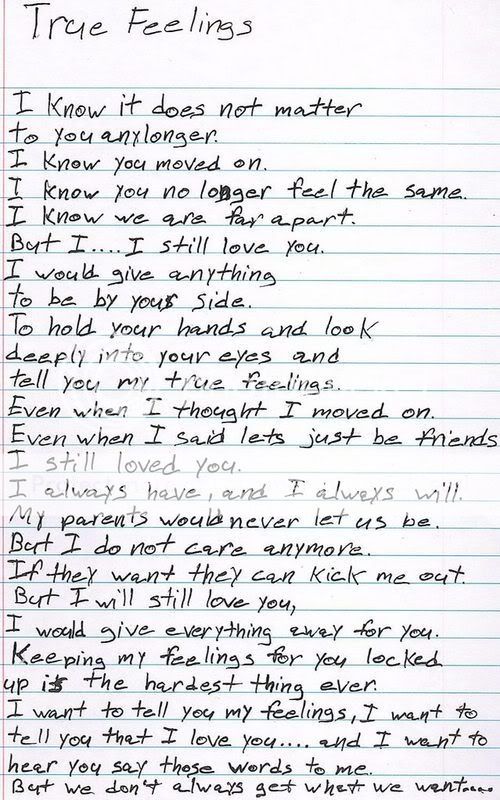 True Feelings
I know it does not matter
to you anylonger.
I know you moved on.
I know you no longer feel the same.
I know we are far apart.
But I....I still love you.
I would give anything
to be by your side.
To hold your hands and look
deeply into your eyes and
tell you my true feelings.
Even when I thought I moved on.
Even when I said lets just be friends
I still loved you.
I always have, and I always will.
My parents would never let us be.
But I do not care anymore.
If they want they can kick me out.
But I will still love you,
I would give everything away for you.
Keeping my feelings for you locked
up is the hardest thing ever.
I want to tell you my feelings, I want to
tell you that I love you.... and I want to
hear you say those words to me.
But we don't always get what we want.....